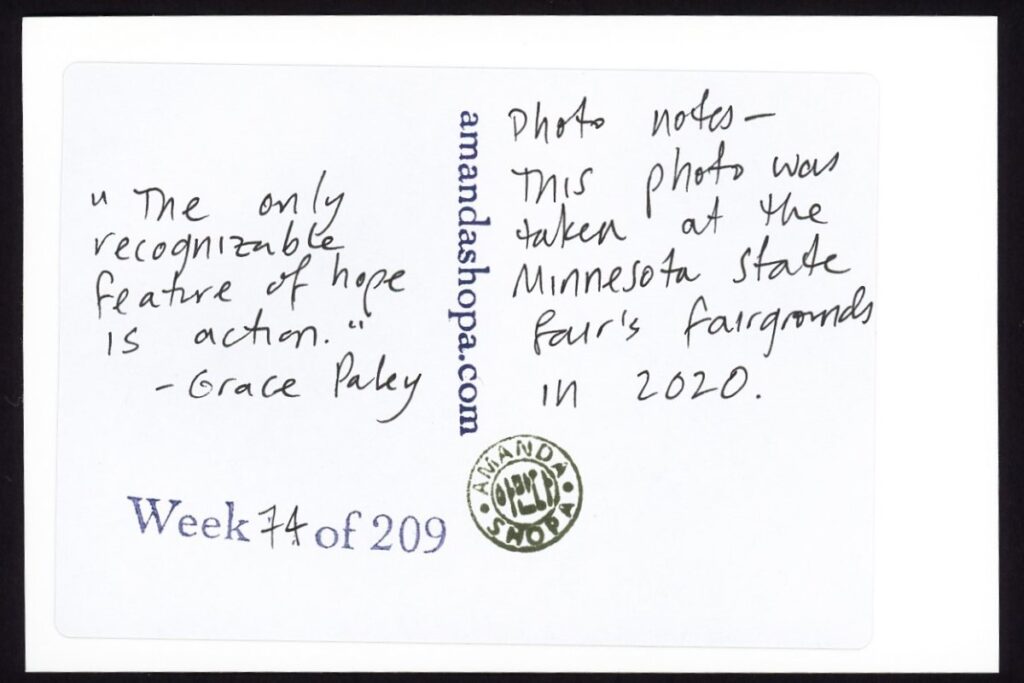 " The only
recognizable
feature of hope
is action."
- Grace Paley
Week 74 of 209
amandashopa.com
AMANDA
SHOPA
Photo notes—
This photo was
taken at the
Minnesota State
Fair's fairgrounds
in 2020.